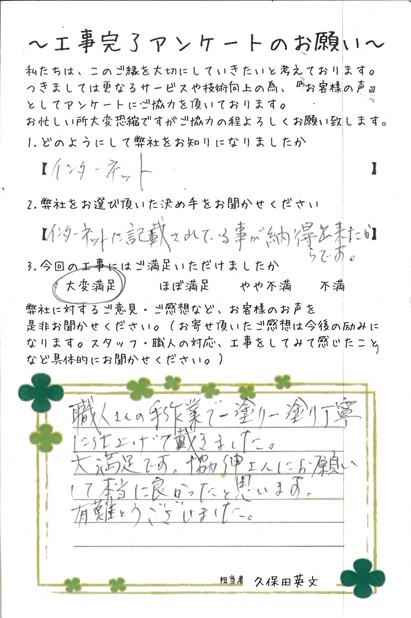 ～工事完了アンケートのお願い～
私たちは、このご縁を大切にしていきたいと考えております。
つきましては更なるサービスや技術向上の為、『お客様の声』
としてアンケートにご協力を頂いております。
お忙しい所大変恐縮ですがご協力の程よろしくお願い致します。
1.どのようにして弊社をお知りになりましたか
【インターネット】
2.弊社をお選び頂いた決め手をお聞かせください
【インターネットに記載されている事が納得出来たか】
らです。
3.今回の工事にはご満足いただけましたか
大変満足 ほぼ満足 やや不満 不満
弊社に対するご意見・ご感想など、お客様のお声を
是非お聞かせください。(お寄せ頂いたご感想は今後の励みに
なります。スタッフ・職人の対応、工事をしてみて感じたこと
など具体的にお聞かせください。)
職人さんの手作業で一塗り一塗り丁寧
に仕上げて戴きました。
大満足です。協伸さんにお願い
して本当に良かったと思います。
有難とうございました。
担当者 久保田英文